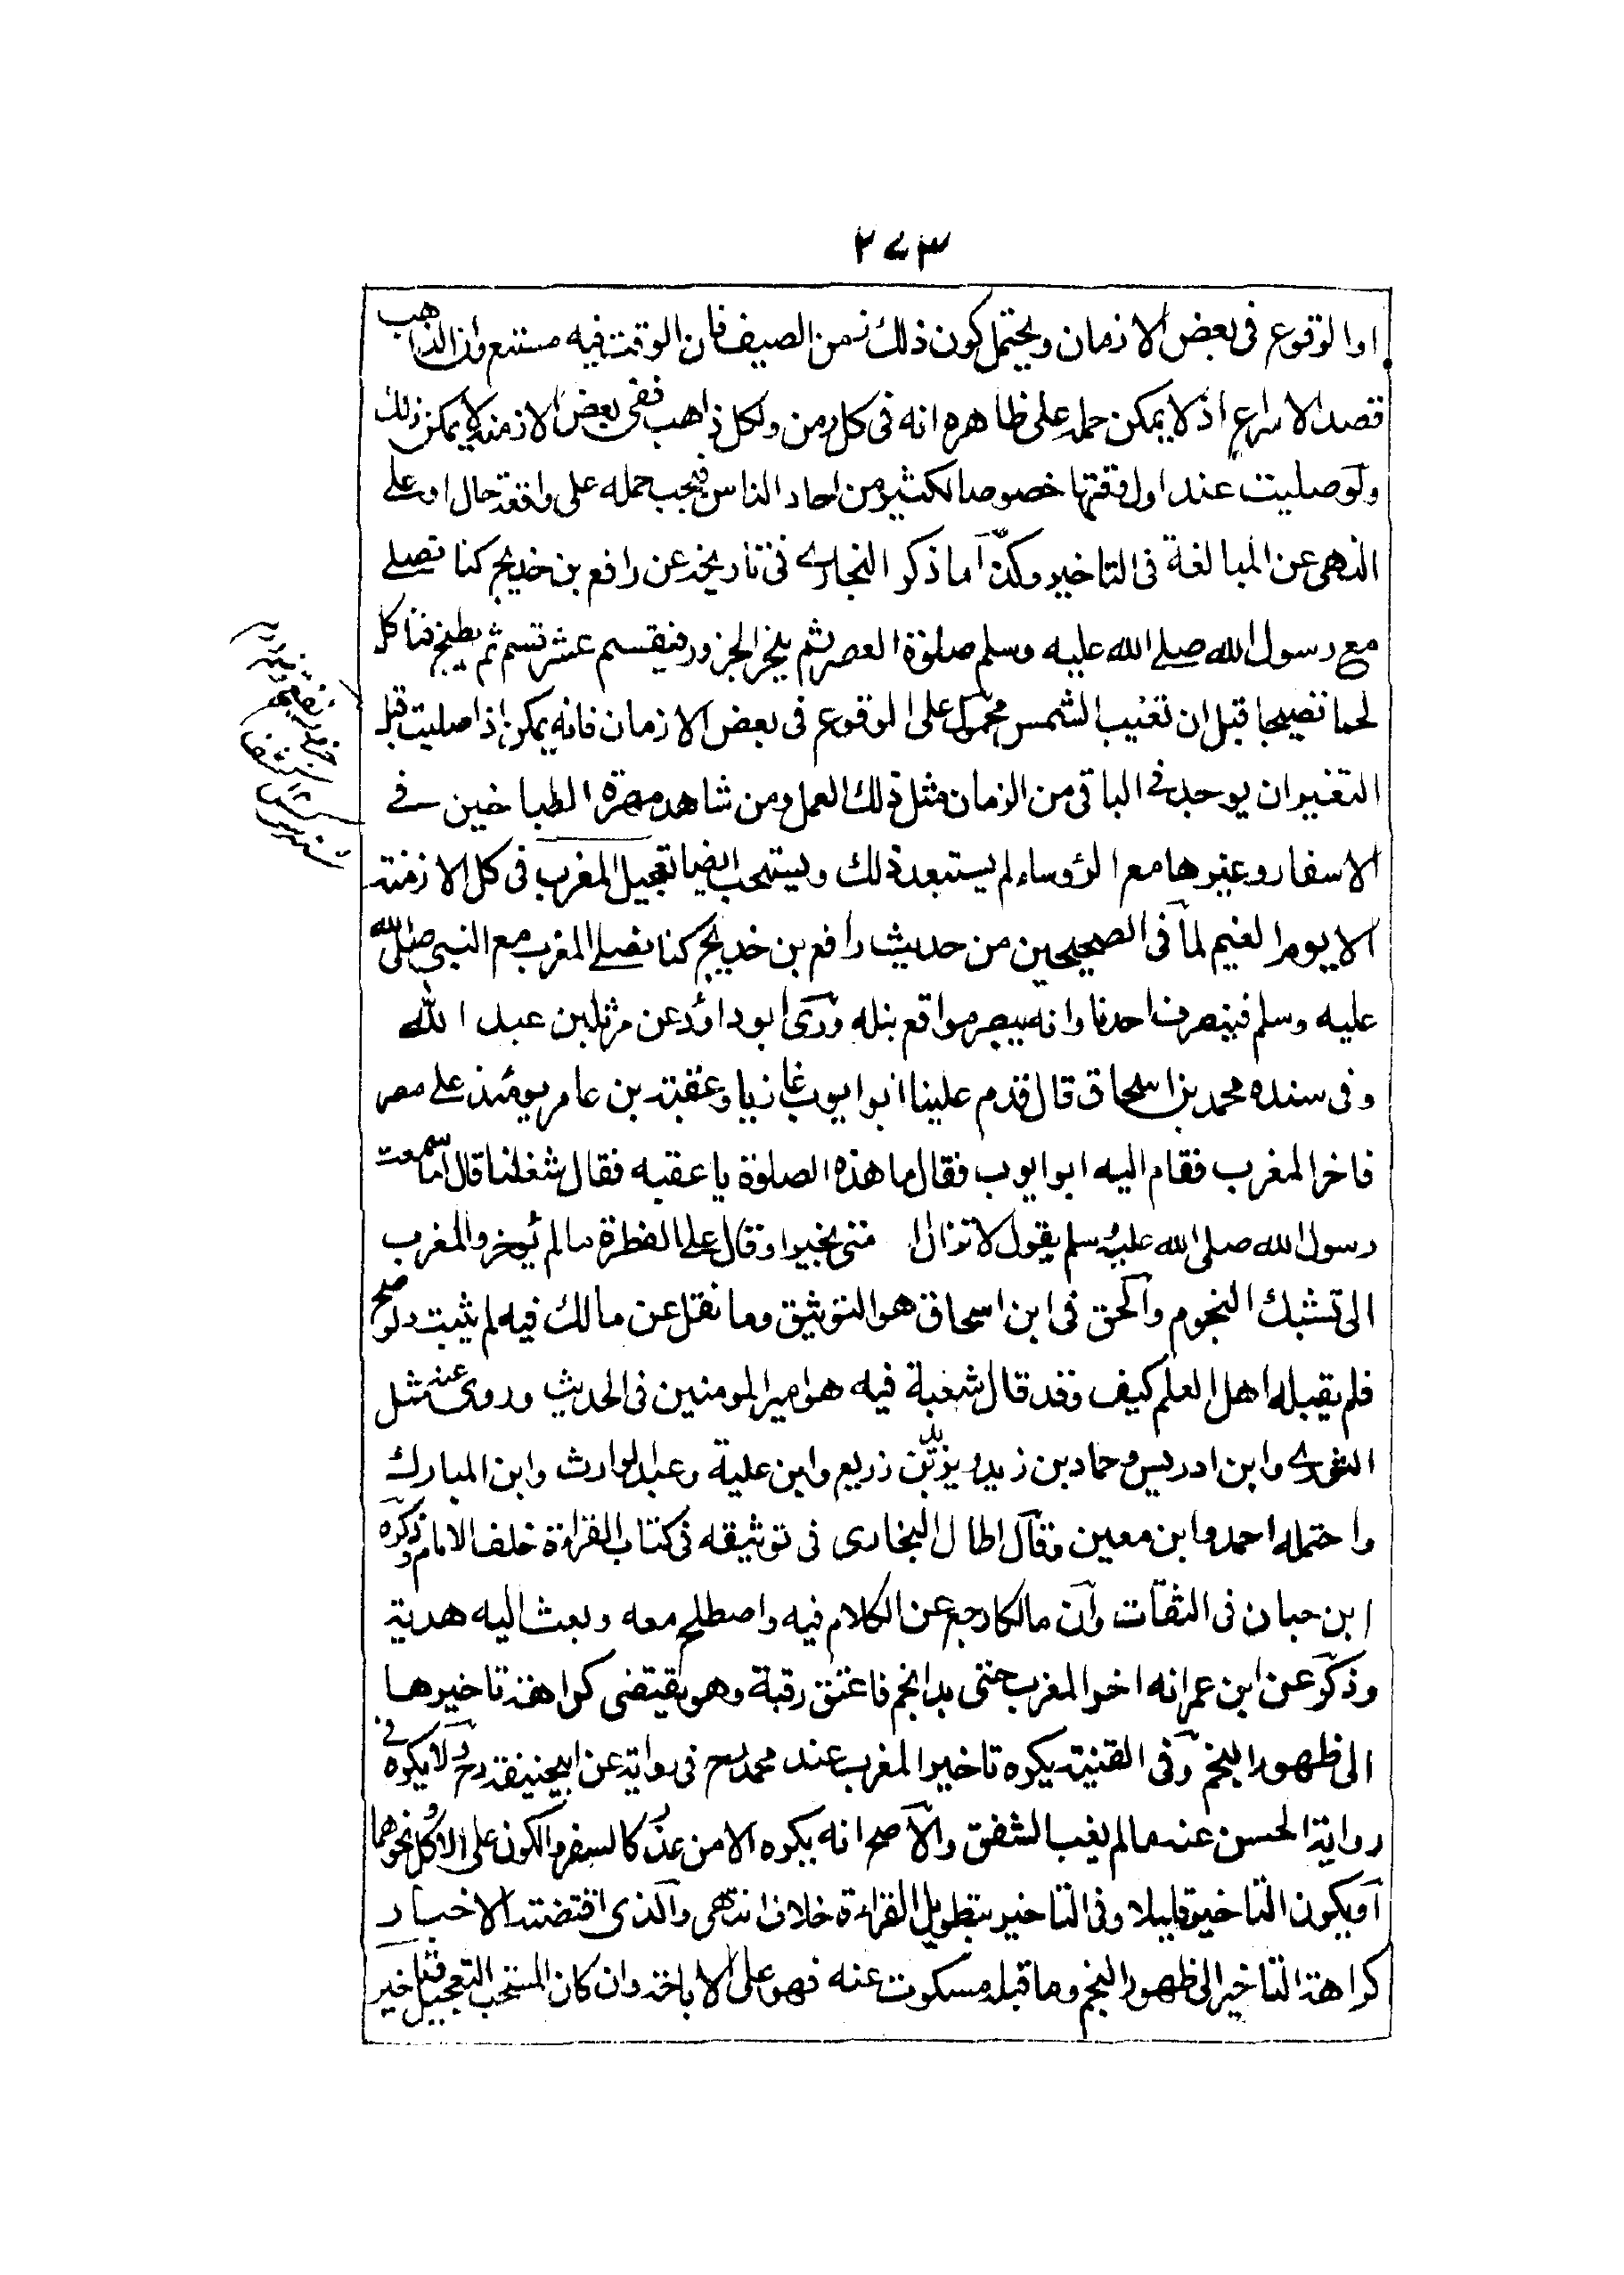 ٢٧٣
او الوقوع فى بعض الازمان ويحتمل كون ذلك زمن الصيف فان الوقت فيه متسع وان الذاهب
قصد الاسراع اذ لا يمكن حمله على ظاهره انه فى كل زمن ولكل ذاهب ففى بعض الازمنة لا يمكن ذلك
ولو صليت عند اول وقتها خصوصا لكثير من احاد الناس فيجب حمله على واقعة حال او على
النهى عن المبالغة فى التاخير وكذا ما ذكر البخارى فى تاريخه عن رافع بن خديج كنا نصلے
مع رسول الله صلے الله عليه وسلم صلوة العصر ثم ينحر الجزور فيقسم عشر قسم ثم يطبخ فناكل
لحما نضيجا قبل ان تغيب الشمس محمول على الوقوع فى بعض الازمان فانه يمكن اذا صليت قبل
التغير ان يوجد فى الباقى من الزمان مثل ذلك العمل ومن شاهد مهرة الطباخين فے
الاسفار وغيرها مع الرؤساء لم يستبعد ذلك ويستحب ايضا تعجيل المغرب فى كل الازمنة
الا يوم الغيم لما فى الصحيحين من حديث رافع بن خديج كنا نصلے المغرب مع النبى صلى الله
عليه وسلم فينصرف احدنا وانه ليبصر مواقع نبله وروى ابو داؤد عن مرثد بن عبد الله
وفى سنده محمد بن اسحاق قال قدم علينا ابو ايوب غازيا وعقبة بن عامر يومئذ على مصر
فاخر المغرب فقام اليه ابو ايوب فقال ما هذه الصلوة يا عقبه فقال شغلنا قال اما سمعت
رسول الله صلى الله عليه وسلم يقول لا تزال امتى بخير او قال على الفطرة ما لم يؤخروا المغرب
الى تشبك النجوم والحق فى ابن اسحاق هو التوثيق وما نقل عن مالك فيه لم يثبت ولو صح
فلم يقبله اهل العلم كيف وقد قال شعبة فيه هو امير المومنين فى الحديث وروى عنه مثل
الثورے وابن ادريس وحماد بن زيد ويزيد بن زريع وابن علية وعبد الوارث وابن المبارك
واحتمله احمد وابن معين وقال اطال البخارى فى توثيقه فى كتاب القراءة خلف الامام وذكره
ابن حبان فى الثقات وان مالكا رجع عن الكلام فيه واصطلح معه وبعث اليه هدية
وذكر عن ابن عمر انه اخر المغرب حتى بدا نجم فاعتق رقبة وهو يقتضى كراهة تاخيرها
الى ظهور النجم وفى القنية يكره تاخير المغرب عند محمد رح فى رواية عن ابيحنيفة رح ولا يكره فى
رواية الحسن عنه ما لم يغب الشفق والاصح انه يكره الا من عذر كالسفر والكون على الاكل ونحوهما
او يكون التاخير قليلا وفى التاخير بتطويل القراءة خلاف انتهى والذى اقتضته الاخبار
كراهة التاخير الى ظهور النجم وما قبله مسكوت عنه فهو على الاباحة وان كان المستحب التعجيل